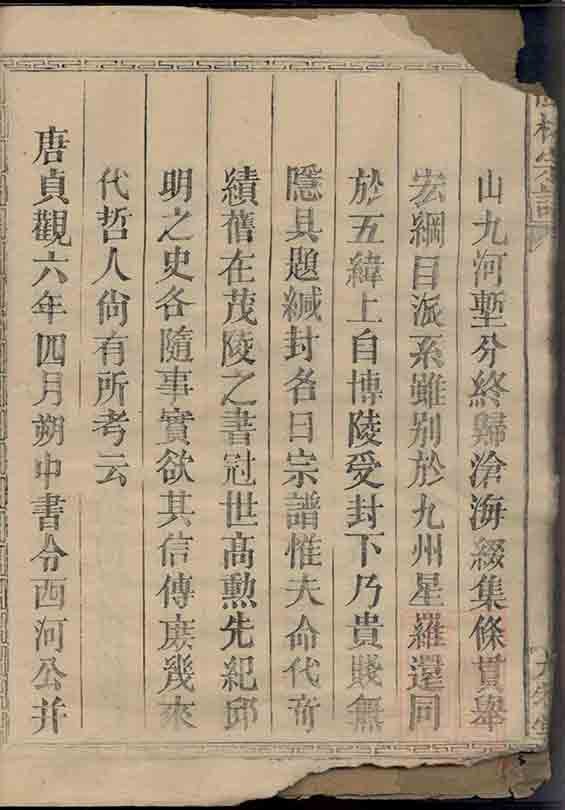 山九河塹分終歸滄海綴集條貫舉
宏綱目派系雖别於九州星羅還同
於五緯上自博陵受封下乃貴賤無
隱具題緘封名曰宗譜惟夫命代奇
績舊在茂陵之書冠世高勲先紀邱
明之史各隨事實欲其信傳庻幾來
代哲人尚有所考云
唐貞觀六年四月朔中書令西河公并